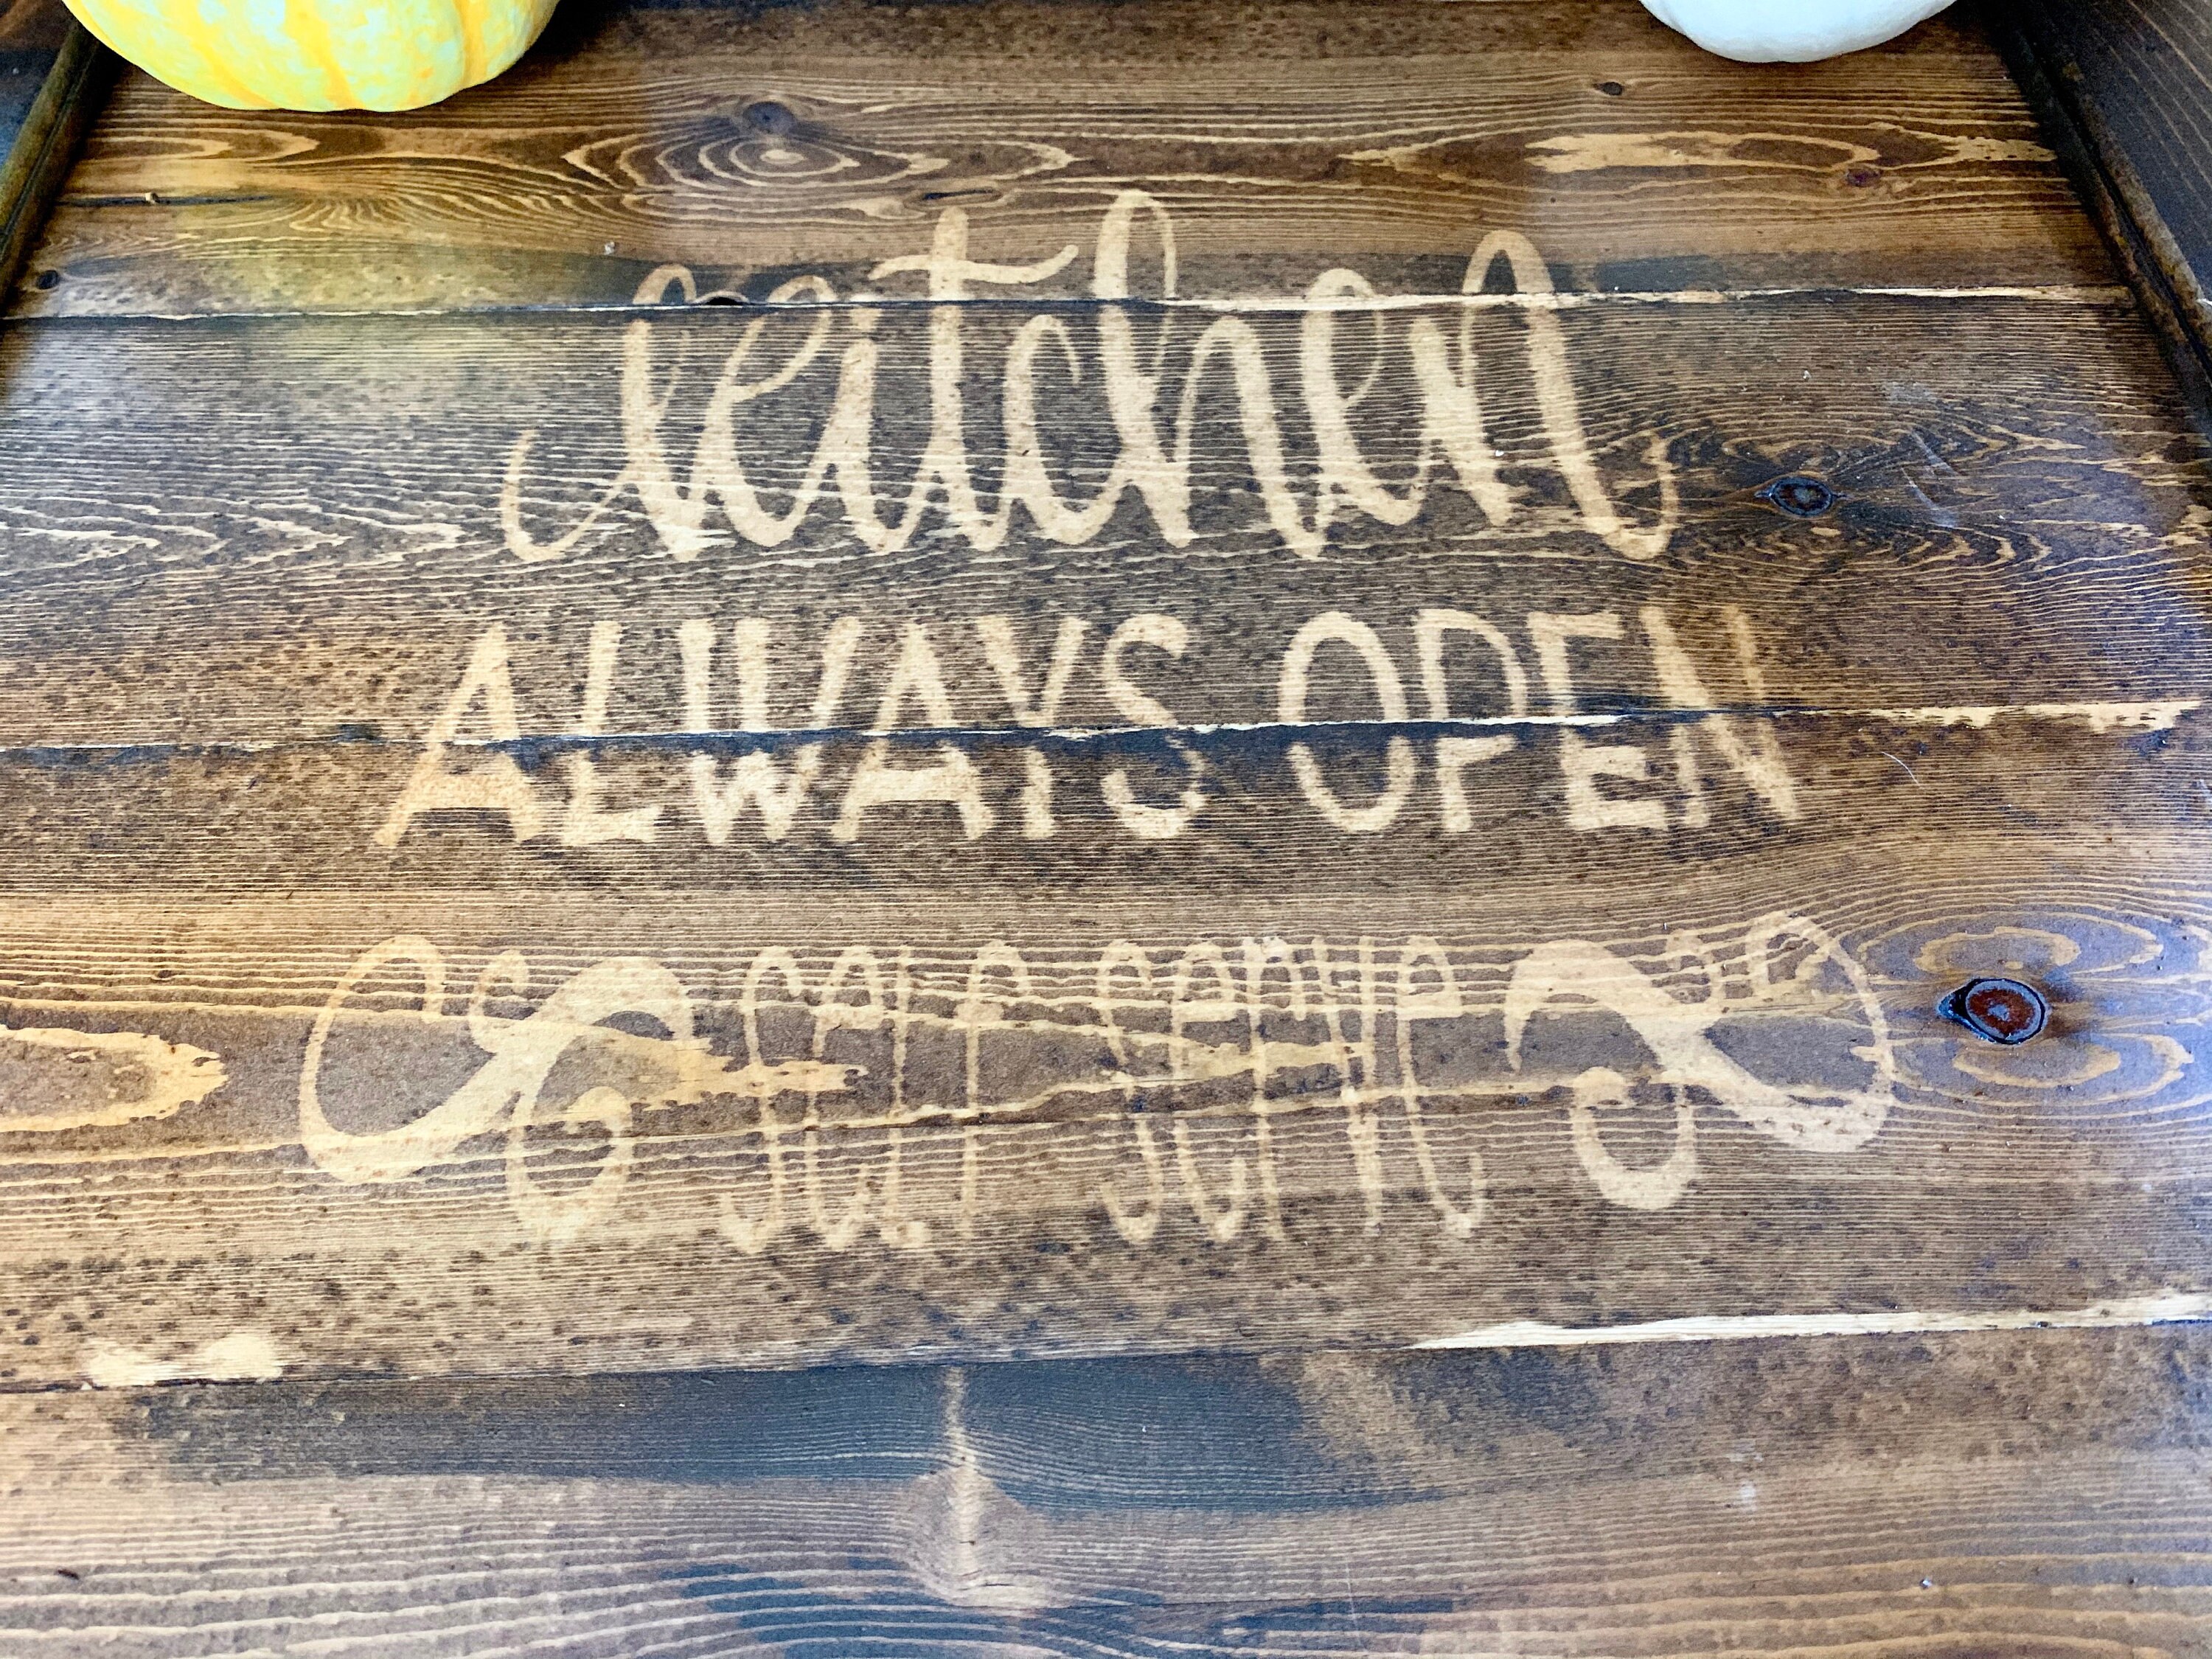 kitchen
ALWAYS OPEN
self serve